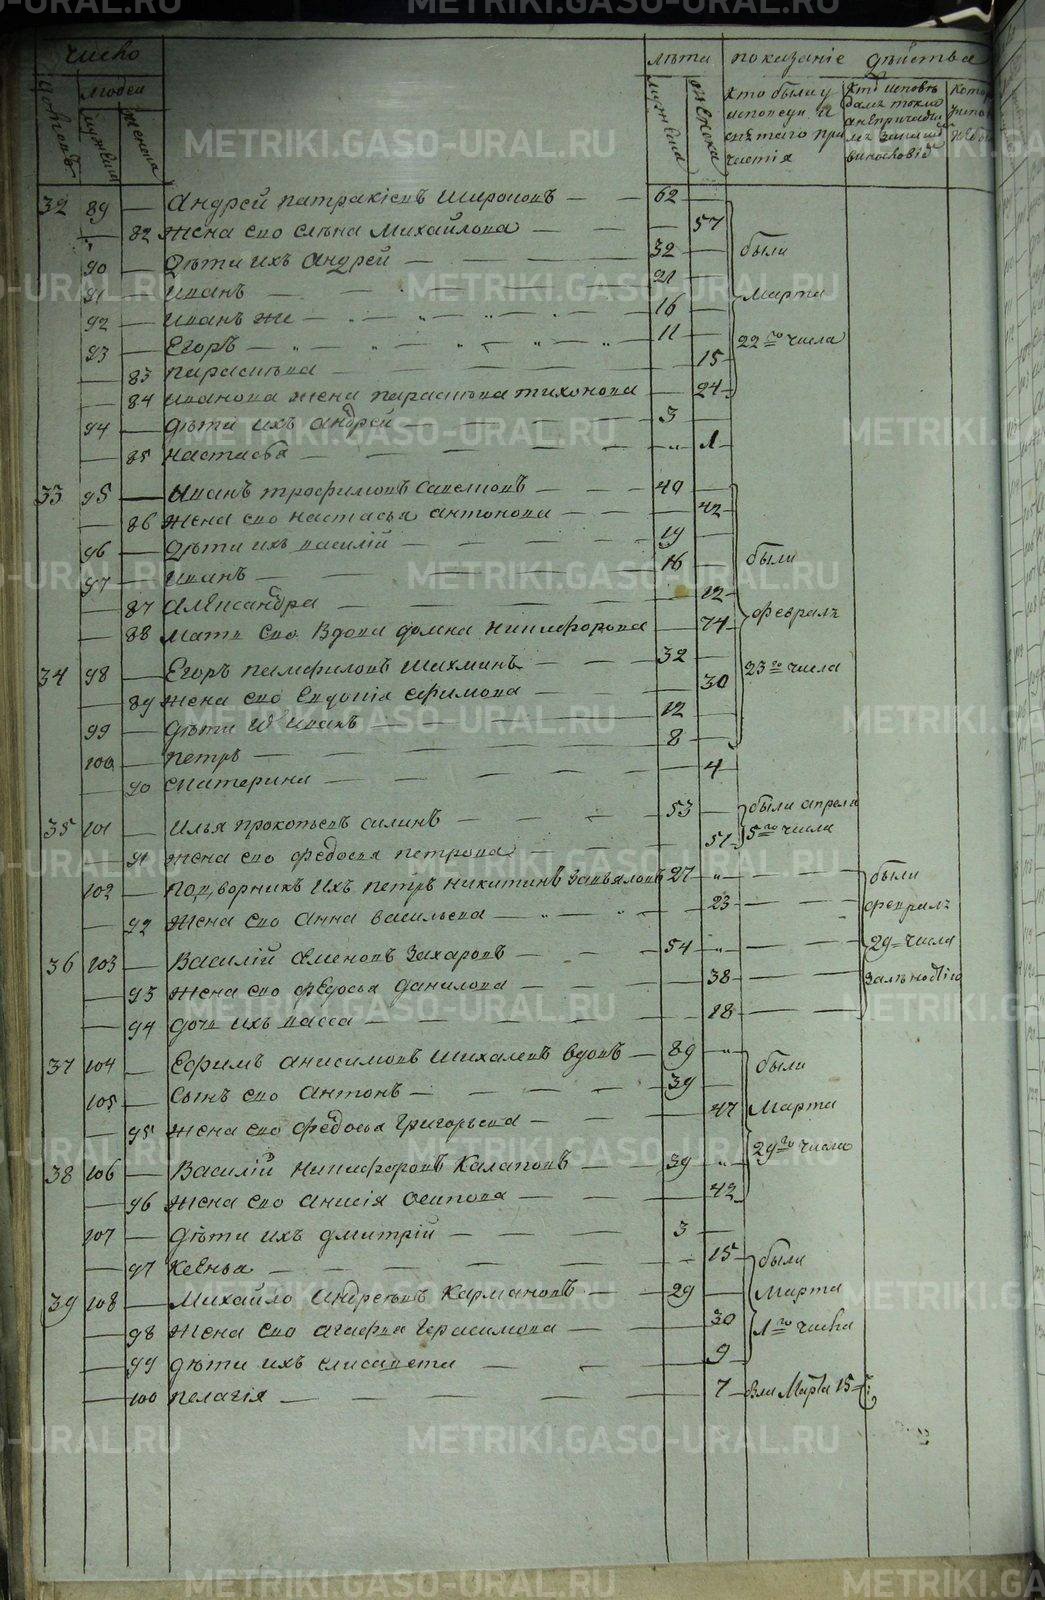 число лѣта показаніе дѣйства
дворовъ людей мужеска женска мужеска женска кто были у исповеди и святаго причастія
32 89 — Андрей патракіевъ широковъ — 62 —
— 82 жена ево елѣна Михайлова — — 57
90 — дѣти ихъ андрей — 32 — были
91 — иванъ — 21 —
92 — иванъ же — 16 — Марта
93 — Егоръ — 11 — 22го числа
— 83 параскева — — 15
— 84 иванова жена параскева тихонова — 24
94 — дѣти ихъ андрей — 3 —
— 85 настасья — „ 1
33 95 — Иванъ трофимовъ — 49 —
— 86 жена ево настасья антонова — — 42
96 — дѣти ихъ василій — 19 —
97 — иванъ — 16 — были
— 87 александра — — 12
— 88 мать ево вдова домна никифорова — 74 февраля
34 98 — Егоръ памфиловъ шихминъ — 32 —
— 89 жена ево евдокія ефимова — — 30 23го числа
99 — дѣти иванъ — 12 —
100 — петръ — 8 —
— 90 екатерина — — 4
35 101 — илья прокопьевъ силинъ — 53 — были апреля
— 91 жена ево федосья петрова — — 51 5го числа
102 — подворникъ ихъ петръ никитинъ завьяловъ 27 „ — были
— 92 жена ево анна васильева — — 23 — февраля
36 103 — Василій семеновъ захаровъ — 54 „ — 29 числа
— 93 жена ево федосья данилова — — 38 —
— 94 дочь ихъ васса — — 18 —
37 104 — Ефимъ анисимовъ шихалевъ вдовъ — 89 „ были
105 — сынъ ево антонъ — 39 —
— 95 жена ево федосья григорьева — — 47 Марта
38 106 — Василій никифоровъ калаповъ — 39 „ 29го числа
— 96 жена ево анисія осипова — — 42
107 — дѣти ихъ дмитрій — 3 —
— 97 ксенья — — 15 были
39 108 — Михайло андреевъ кармановъ — 29 — Марта
— 98 жена ево агафья герасимова — — 30 1го числа
— 99 дѣти ихъ елисавета — — 9
— 100 пелагія — — 7 были Марта 15
METRIKI.GASO-URAL.RU